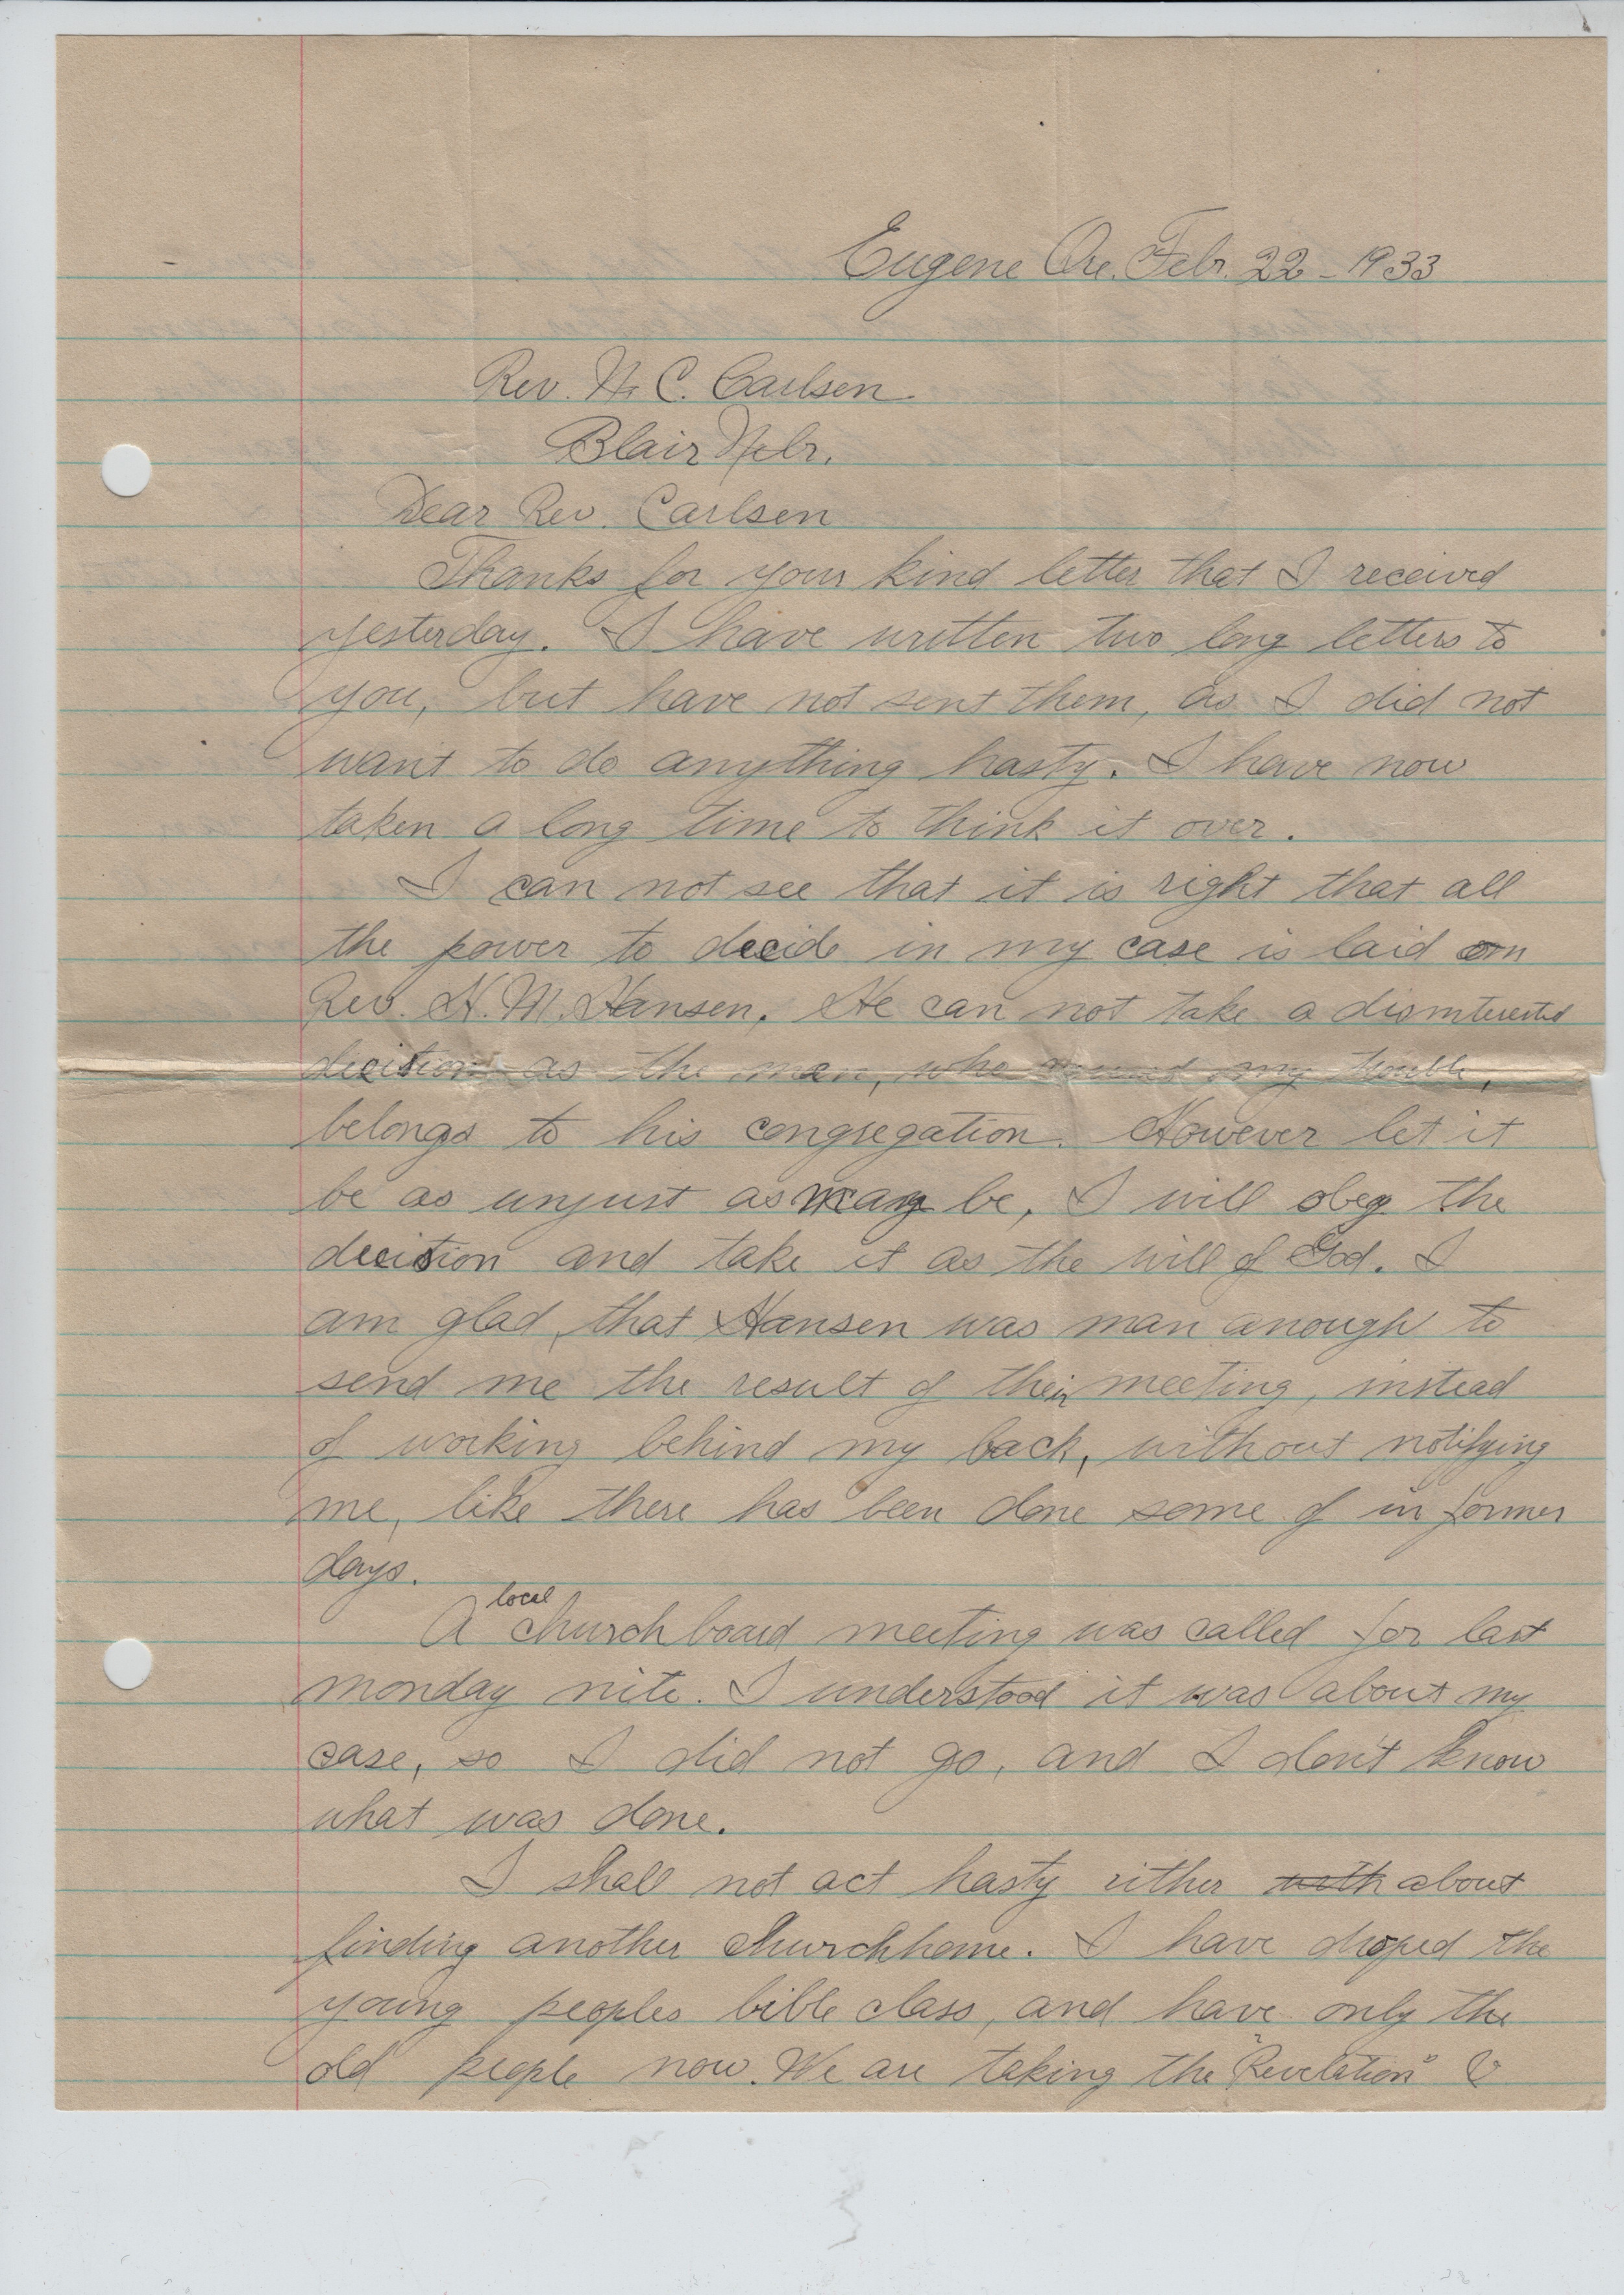 Eugene Ore. Febr. 22 - 1933
Rev. N. C. Carlsen
Blair Nebr.
Dear Rev. Carlsen
Thanks for your kind letter that I received
yesterday. I have written two long letters to
you, but have not sent them, as I did not
want to do anything hasty. I have now
taken a long time to think it over.
I can not see that it is right that all
the power to decide in my case is laid on
Rev. H. M. Hansen. He can not take a disinterested
decition as the man, who my trouble,
belongs to his congregation. However let it
be as unjust as may be, I will obey the
decition and take it as the will of God. I
am glad, that Hansen was man anough to
send me the result of their meeting, instead
of working behind my back, without notifying
me, like there has been done some of in former
days.
A local church board meeting was called for last
monday nite. I understood it was about my
case, so I did not go, and I don't know
what was done.
I shall not act hasty either with about
finding another churchhome. I have droped the
young peoples bible class, and have only the
old people now. We are taking the "Revelation"